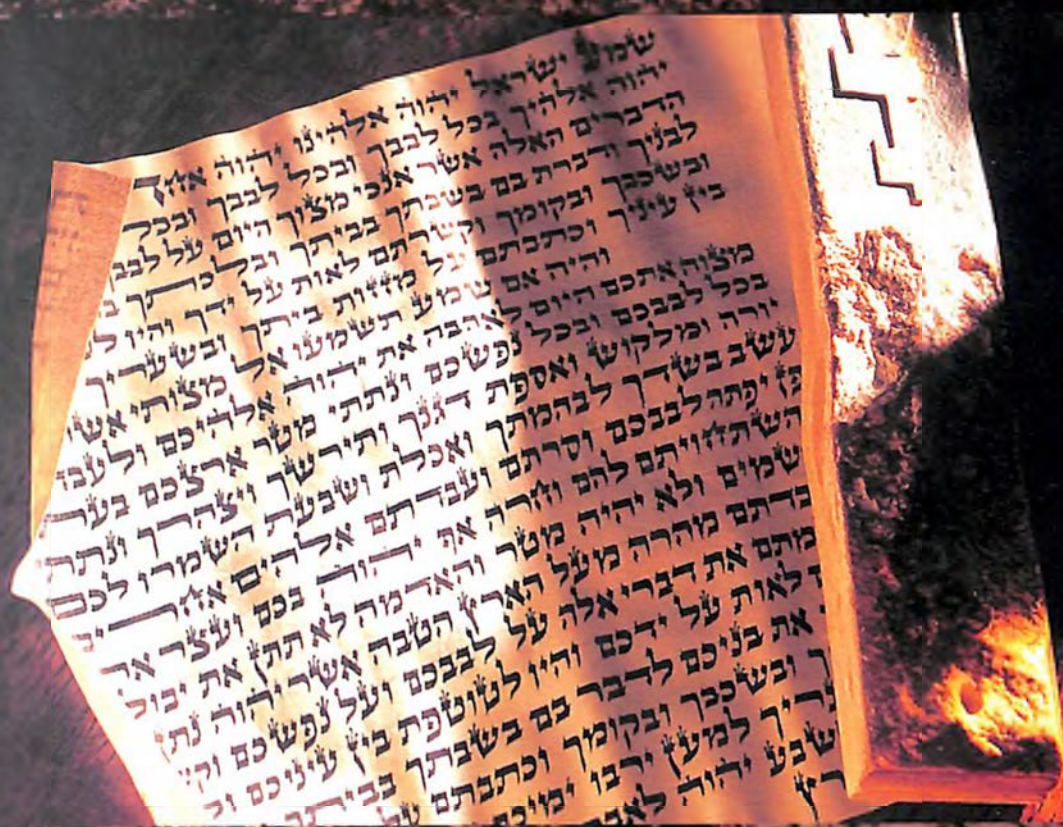 שמע ישראל יהוה אלהינו יהוה אחד
יהוה אלהיך בכל לבבך ובכל לבבך ובכל
הדברים האלה אשר אנכי מצוך היום על לבב
לבניך ודברת בם בשבתך בביתך ובלכתך ב
ובשכבך ובקומך וקשרתם לאות על ידך והיו ל
בין עיניך וכתבתם על מזזות ביתך ובשעריך
והיה אם שמע תשמעו אל מצותי אשר
מצוה אתכם היום לאהבה את יהוה אלהיכם ולעבד
בכל לבבכם ובכל נפשכם ונתתי מטר ארצכם בעת
יורה ומלקוש ואספת דגנך ותירשך ויצהרך ונתת
עשב בשדך לבהמתך ואכלת ושבעת השמרו לכם
פן יפתה לבבכם וסרתם ועבדתם אלהים אחרים
השתחויתם להם וחרה אף יהוה בכם ועצר את
שמים ולא יהיה מטר והאדמה לא תתן את יבול
בדתם מהרה מעל הארץ הטבה אשר יהוה נתן
מתם את דברי אלה על לבבכם ועל נפשכם וק
לאות על ידכם והיו לטוטפת בין עיניכם ול
את בניכם לדבר בם בשבתך בביתך
ך ובשכבך ובקומך וכתבתם על
ריך למען ירבו ימיכם
שבע יהוה לאב
רץ